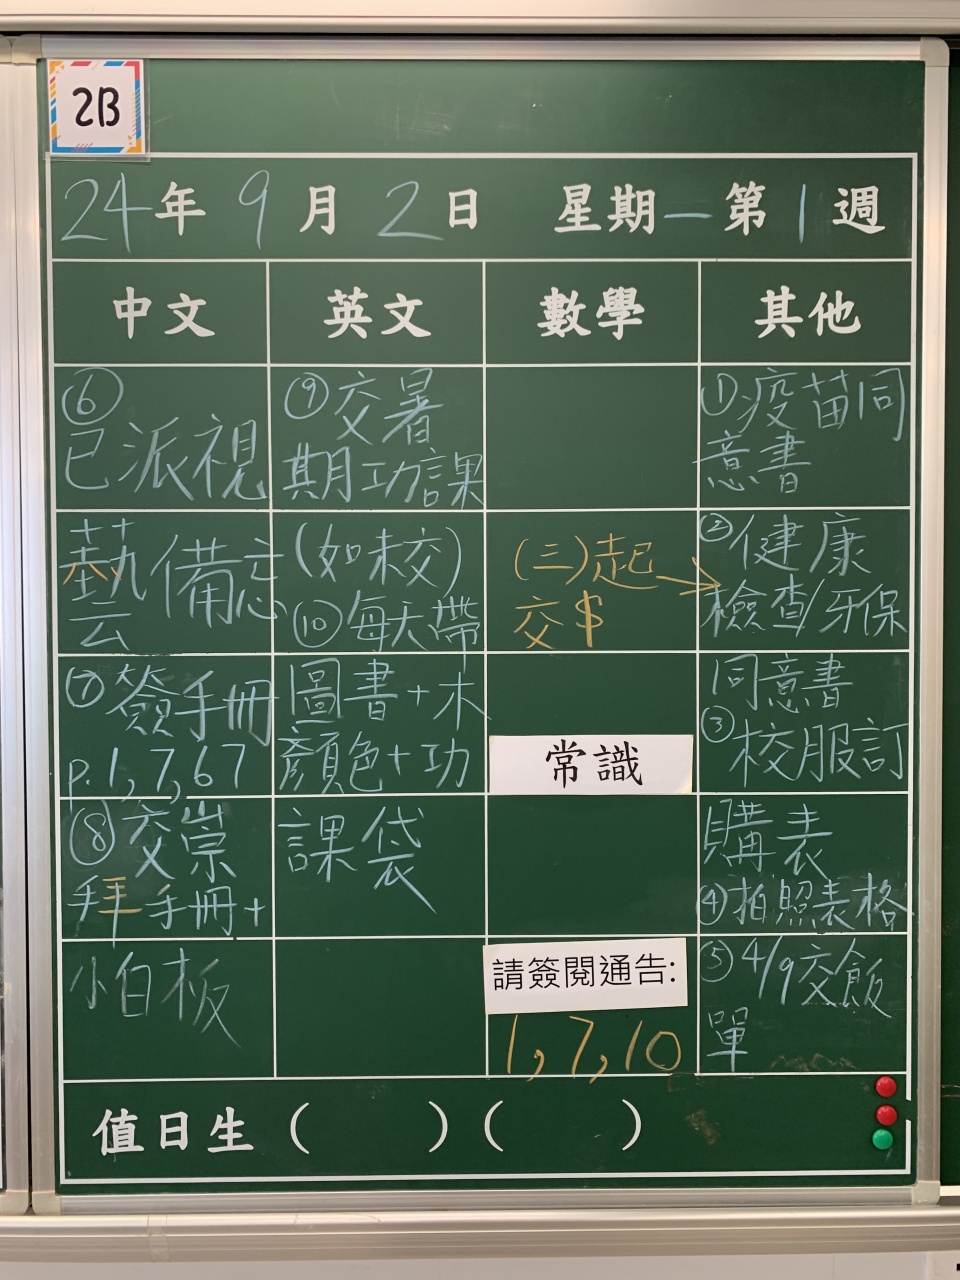 2B
24年9月2日 星期一第1週
中文
英文
數學
其他
⑥
已派視
藝備忘
⑦簽手冊
p.1,7,67
⑧交崇
拜手冊+
小白板
⑨交暑
期功課
(如未交)
⑩每天帶
圖書+木
顏色+功
課袋
(三)起→
交$
常識
請簽閱通告:
1,7,10
①疫苗同
意書
②健康
檢查/牙保
同意書
③校服訂
購表
④拍照表格
⑤4/9交飯
單
值日生( )( )